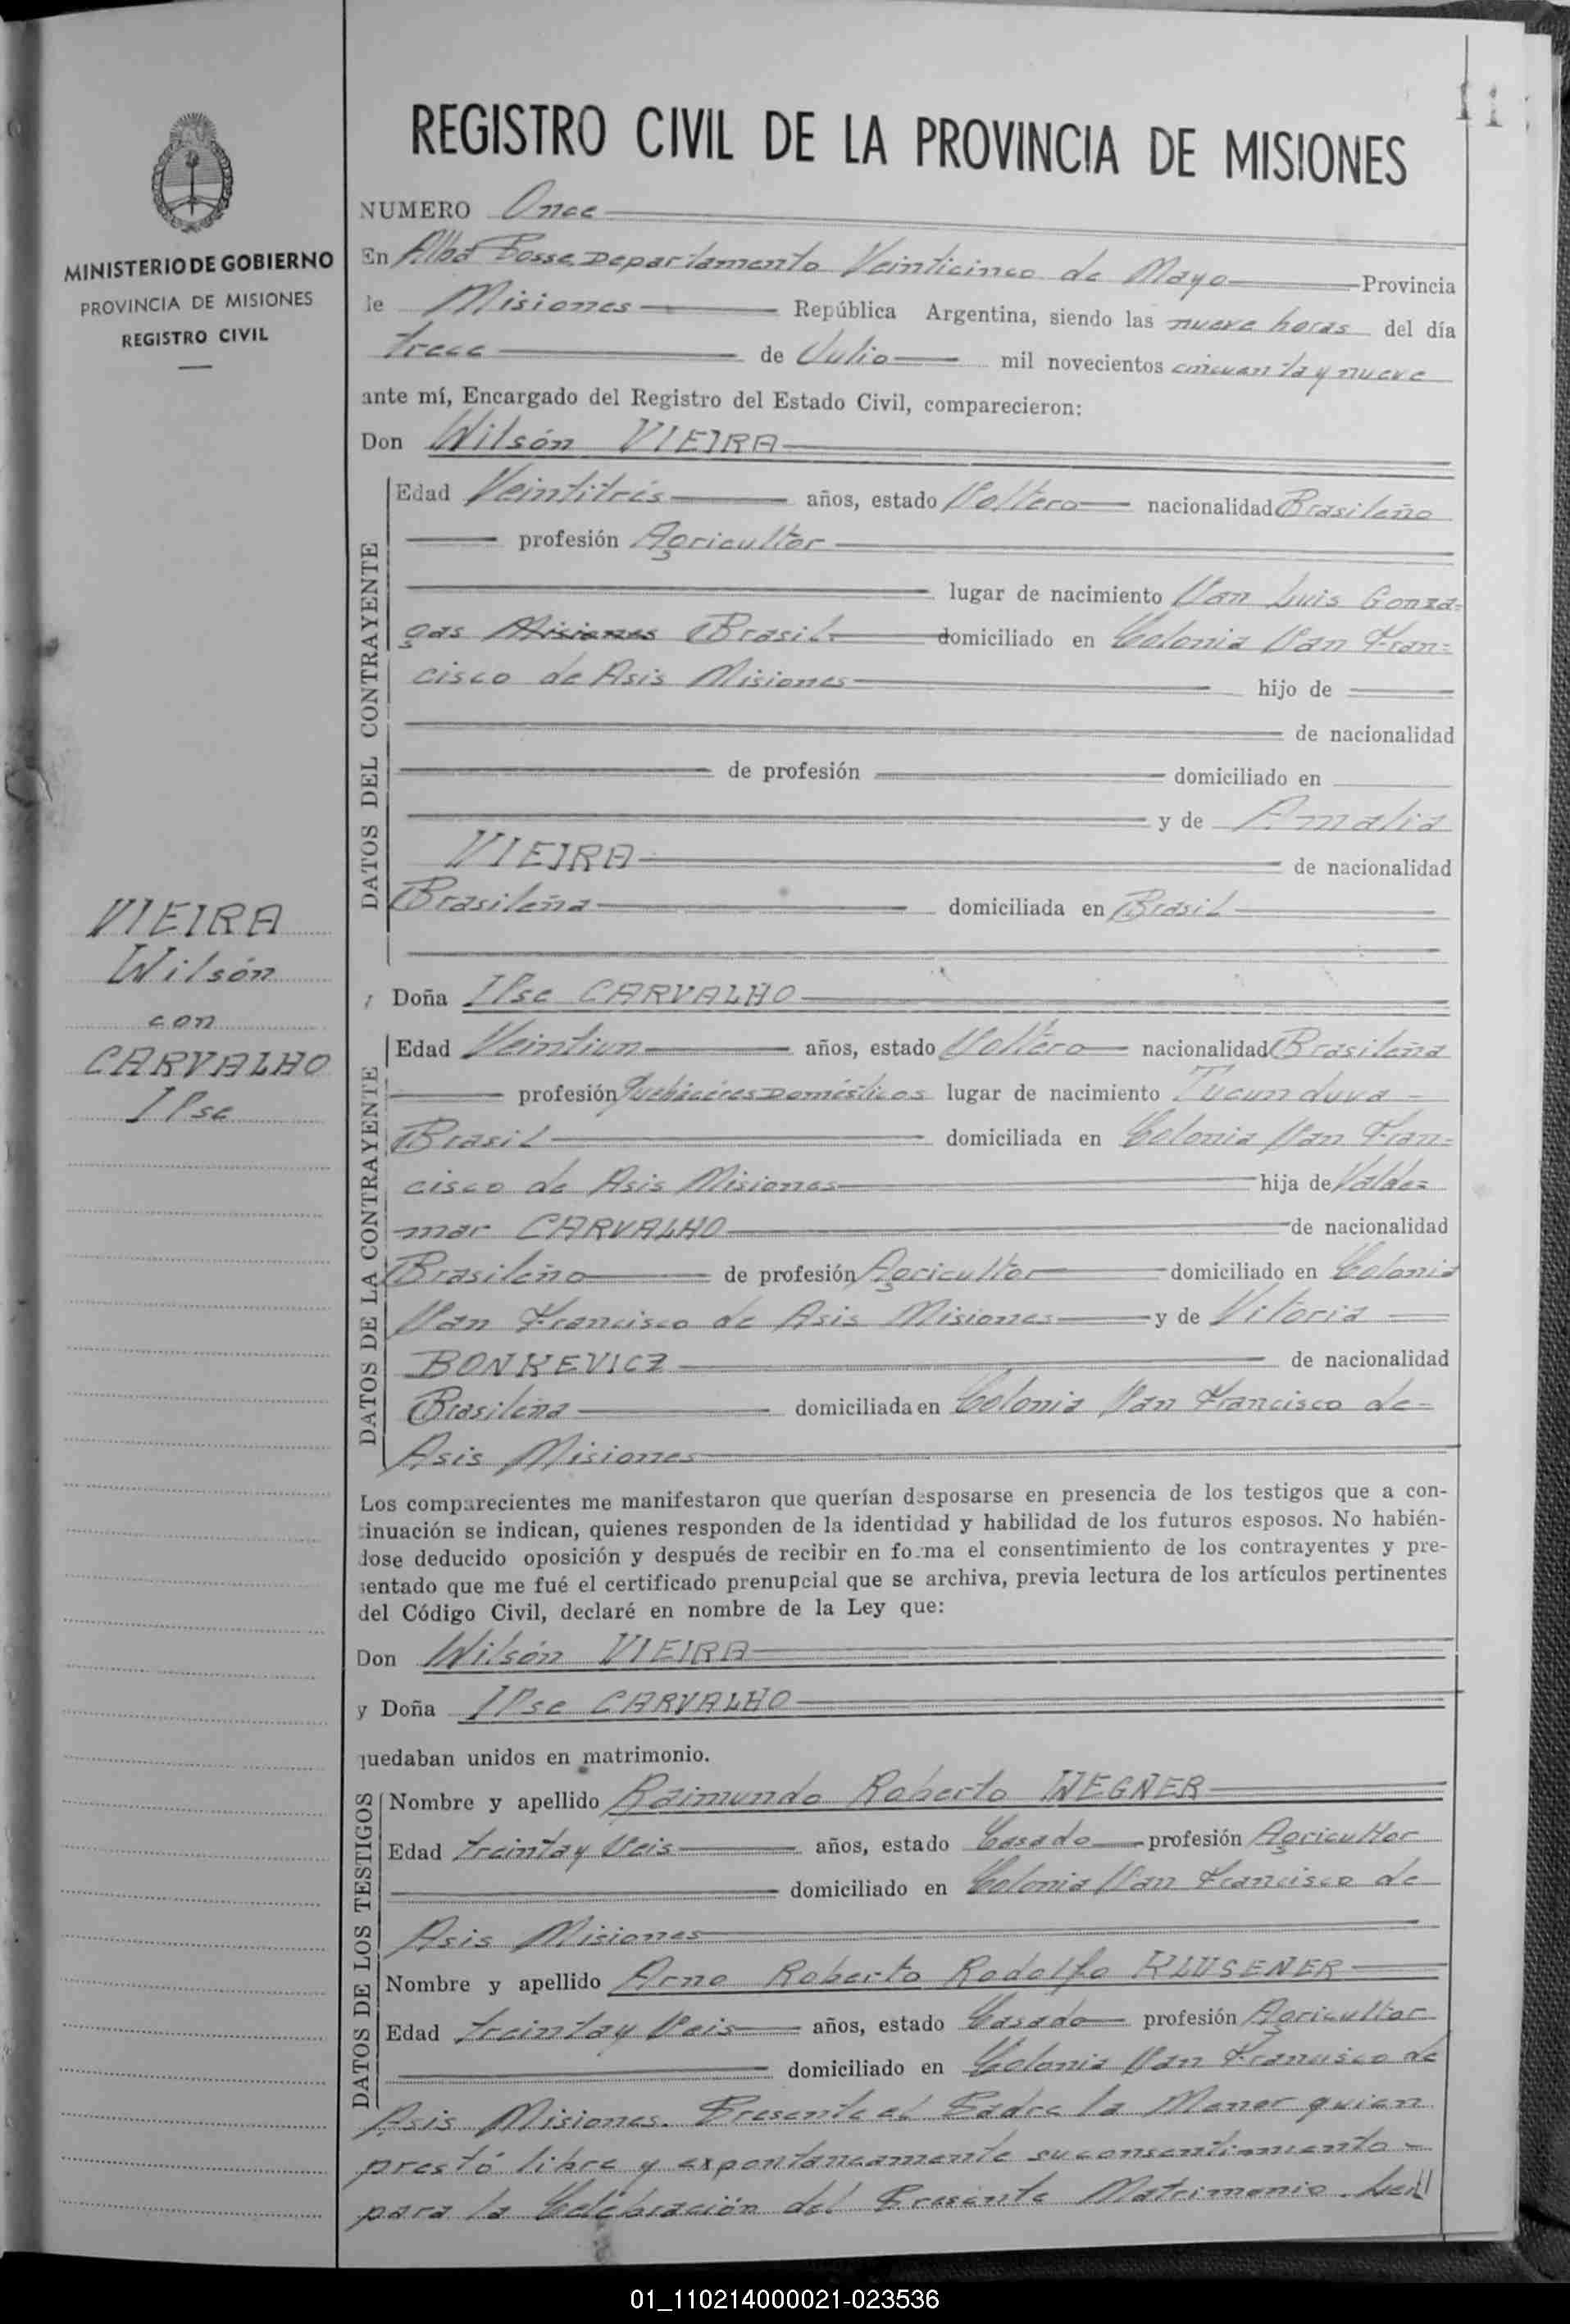 11
MINISTERIO DE GOBIERNO
PROVINCIA DE MISIONES
REGISTRO CIVIL
VIEIRA
Wilsón
con
CARVALHO
Ilse
REGISTRO CIVIL DE LA PROVINCIA DE MISIONES
NUMERO Once
En Alba Posse Departamento Veinticinco de Mayo Provincia
de Misiones República Argentina, siendo las nueve horas del día
trece de Julio mil novecientos cincuenta y nueve
ante mí, Encargado del Registro del Estado Civil, comparecieron:
Don Wilsón VIEIRA
DATOS DEL CONTRAYENTE
Edad Veintitrés años, estado Soltero nacionalidad Brasileño
profesión Agricultor
lugar de nacimiento San Luis Gonza=
gas Misiones Brasil domiciliado en Colonia San Fran=
cisco de Asis Misiones hijo de
de nacionalidad
de profesión domiciliado en
y de Amalia
VIEIRA de nacionalidad
Brasileña domiciliada en Brasil
y Doña Ilse CARVALHO
DATOS DE LA CONTRAYENTE
Edad Veintiun años, estado Soltera nacionalidad Brasileña
profesión Quehaceres Domésticos lugar de nacimiento Tucunduva -
Brasil domiciliada en Colonia San Fran=
cisco de Asis Misiones hija de Valde=
mar CARVALHO de nacionalidad
Brasileño de profesión Agricultor domiciliado en Colonia
San Francisco de Asis Misiones y de Vitoria
BONKEVICZ de nacionalidad
Brasileña domiciliada en Colonia San Francisco de=
Asis Misiones
Los comparecientes me manifestaron que querían desposarse en presencia de los testigos que a con-
tinuación se indican, quienes responden de la identidad y habilidad de los futuros esposos. No habién-
dose deducido oposición y después de recibir en forma el consentimiento de los contrayentes y pre-
sentado que me fué el certificado prenupcial que se archiva, previa lectura de los artículos pertinentes
del Código Civil, declaré en nombre de la Ley que:
Don Wilsón VIEIRA
y Doña Ilse CARVALHO
quedaban unidos en matrimonio.
DATOS DE LOS TESTIGOS
Nombre y apellido Raimundo Roberto WEGNER
Edad treinta y Seis años, estado Casado profesión Agricultor
domiciliado en Colonia San Francisco de
Asis Misiones
Nombre y apellido Arno Roberto Rodolfo KLUSENER
Edad treinta y Seis años, estado Casado profesión Agricultor
domiciliado en Colonia San Francisco de
Asis Misiones. Presente el Padre la Menor quien
prestó libre y expontaneamente su consentimiento -
para la Celebración del Presente Matrimonio.
01_110214000021-023536